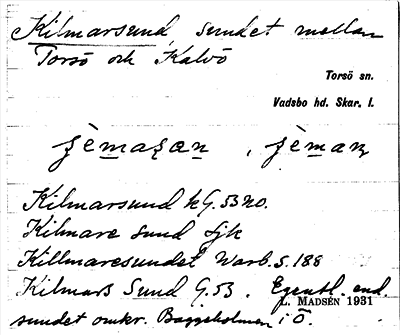 Kilmarsund, sundet mellan
Torsö och Kalvö
Torsö sn.
Vadsbo hd. Skar. l.
Kilmarsund hG. 53 no.
Kilmare sund Sjk
Killmaresundet Warb. S. 188
Kilmars Sund G. 53. Egentl. end.
L. MADSÉN 1931
sundet omkr. Baggeholmen i Ö.